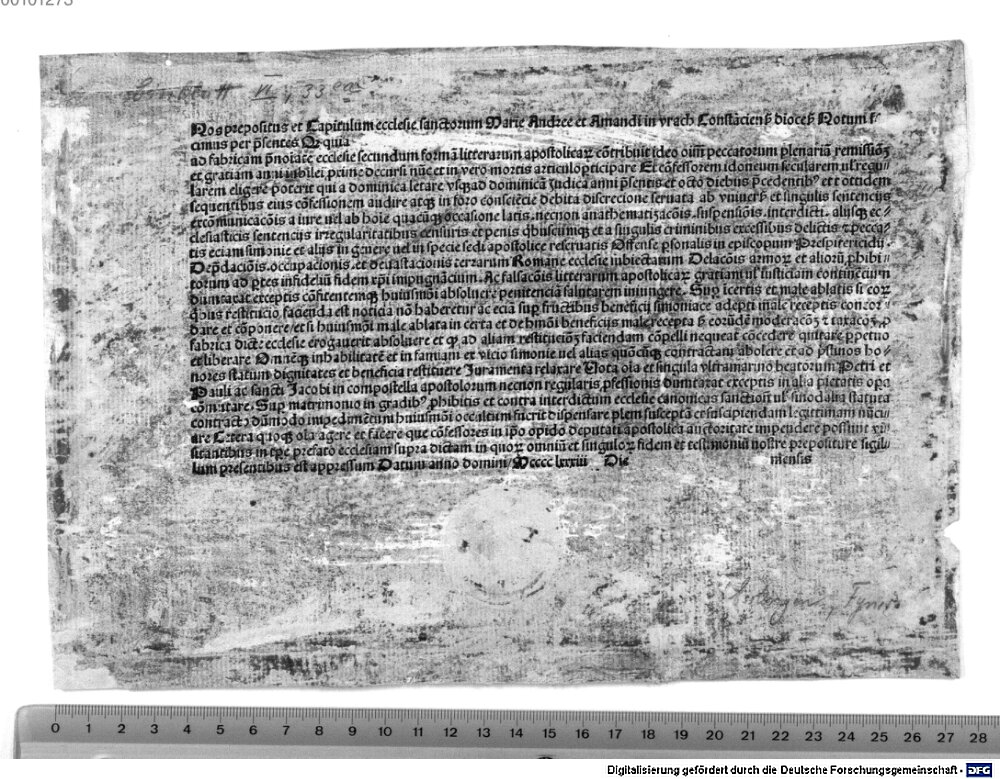 00101273
Nos prepositus et Capitulum ecclesie sanctorum Marie Andree et Amandi in vrach Constāciens̄ dioces̄ Notum f
cimus per p̄sentes Q quia
ad fabricam p̄noīate ecclesie secundum formā litterarum apostolicaꝝ cōtribuit ideo oīm̄ peccatorum plenariā remissiōꝫ
et gratiam anni iubilei primo decursi nūc et in vero mortis articulo p̄ticipare Et cōfessorem idoneum secularem ul̄ regu⸗
larem eligere poterit qui a dominica letare vsqꝫ ad dominicā Judica anni p̄sentis et octo diebus p̄cedentibꝰ et t ottidem
sequentibus eius cōfessionem audire atqꝫ in foro consciēcie debita discrecione seruata ab vniuers̄ et singulis sentencijs
excōmunicacōis a iure uel ab hoīe quacūqꝫ occasione latis. necnon anathematizacōis. suspensiōis. interdicti. alijsqꝫ ec⸗
clesiasticis sentencijs irregularitatibus censuris et penis q̄buscūmqꝫ et a singulis criminibus excessibus delictis ꝛ pecca⸗
tis eciam simonie et alijs in genere uel in specie sedi apostolice reseruatis Offense p̄sonalis in episcopum Prespitericidij.
Dep̄dacionis. occupacionis. et deuastacionis terrarum Romane ecclesie subiectarum Delacōis armoꝝ et aliorū phibi⸗
torum ad p̄tes infidelium fidem xp̄i impugnācium. Ac falsacōis litterarum apostolicaꝝ gratiam ul̄ Justiciam continēcium
dumtaxat exceptis cōfitentemqꝫ huiusmōi absoluere penitenciā salutarem iniungere. Sup̄ ītertis et male ablatis si eoꝝ
q̄bus restitucio facienda est noticia nō haberetur ac eciā sup̄ fructibus beneficij simoniace adepti male receptis concor⸗
dare et cōponere / et si huiusmōi male ablata in certa et de hmōi beneficijs male recepta ꝑ eorūdē moderacōꝫ ꝛ taxacōꝫ ꝓ
fabrica dicte ecclesie erogauerit absoluere et ꝙ ad aliam restituciōꝫ faciendam cōpelli nequeat cōcedere quitare ꝑpetuo
et liberare Omneqꝫ inhabilitatē et infamiam et vicio simonie uel alias quōcūqꝫ contractam abolere et ad p̄stinos ho⸗
nores statum dignitates et beneficia restituere Juramenta relaxare Vota oīa et singula vltramarino beatorum Petri et
Pauli ac sancti Jacobi in compostella apostolorum necnon regularis ꝓfessionis dumtaxat exceptis in alia pietatis opa
cōmutare. Sup̄ matrimonio in gradibꝰ phibitis et contra interdictum ecclesie canonicas sanctiōn ul̄ sinodalia statuta
contracto dūmodo impedimētum huiusmōi occultum fuerit dispensare plem susceptā et suscipiendam legittimam nūcu
are Cetera q̄toqꝫ oīa agere et facere que cōfessores in ip̄o opido deputati apostolica auctoritate impendere possunt vi⸗
sitantibus in tp̄e prefato ecclesiam supra dictam in quoꝝ omniū et singuloꝝ fidem et testimoniū nostre prepositure sigil⸗
lum presentibus est appressum Datum anno domini Mcccc lxxxiii Die mensis
0 1 2 3 4 5 6 7 8 9 10 11 12 13 14 15 16 17 18 19 20 21 22 23 24 25 26 27 28
Digitalisierung gefördert durch die Deutsche Forschungsgemeinschaft · DFG